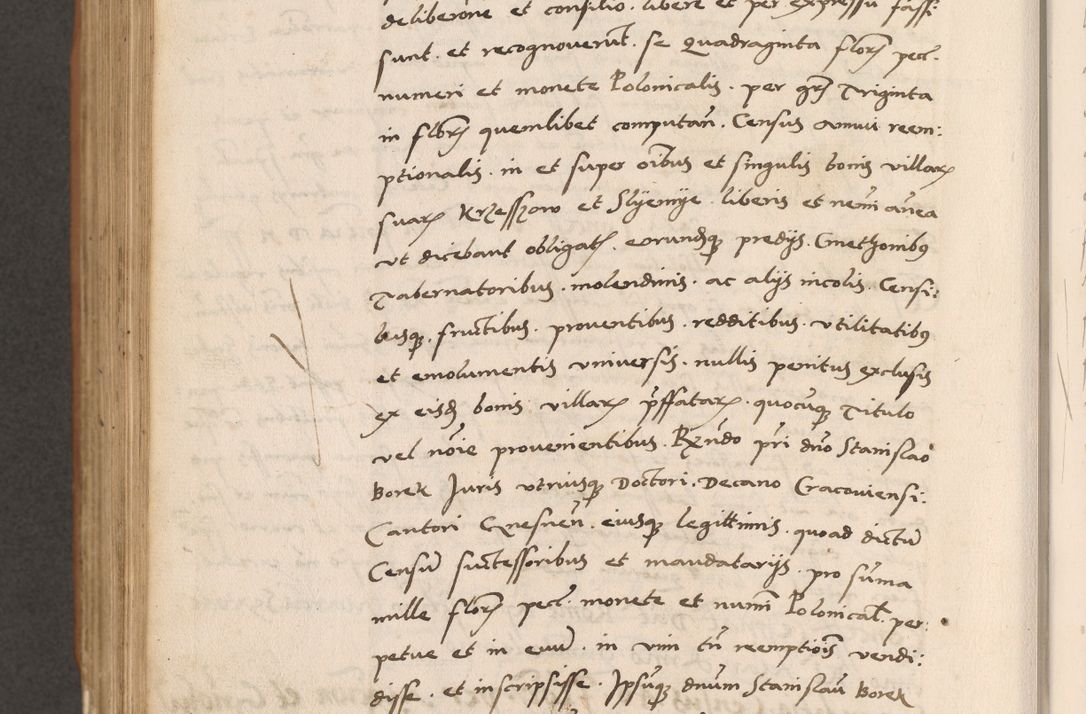 deliberone et consilio. libere et per expressu fassi
sunt. et recognoverūt. se Quadraginta floR pec.
numeri et monete Polonicalis. per grs Triginta
in floR quemlibet computan. Census annui reem:
ptionalis. in et super oībus et singulis bonis villaR
suaR Krzesszow et Slyemye. liberis et nemī antea
ut dicebant obligatis. earundēq predijs. Cmethonibq
Tabernatoribus. molendinis. ac alijs incolis. Censi:
busq. fructibus. proventibus. redditibus. utilitatibq
et emolumentis universis. nullis penitus exclusis
ex eisdē bonis villaR pffataR. quocūq Titulo
vel nōie provenientibus. Rzndo pri dno Stanislao
Borek Juris utriusq Doctori. Decano Cracoviensi.
Cantori Gnesnēn. eiusq legittimis. quoad dictū
Censū successoribus et mandatarijs. pro sūma
mille floR pec. monete et numī Polonical. per:
petue et in evū. in vim tn reemptiois vendi:
disse. et inscripsisse. Ipsūq dnum Stanislaū Borek